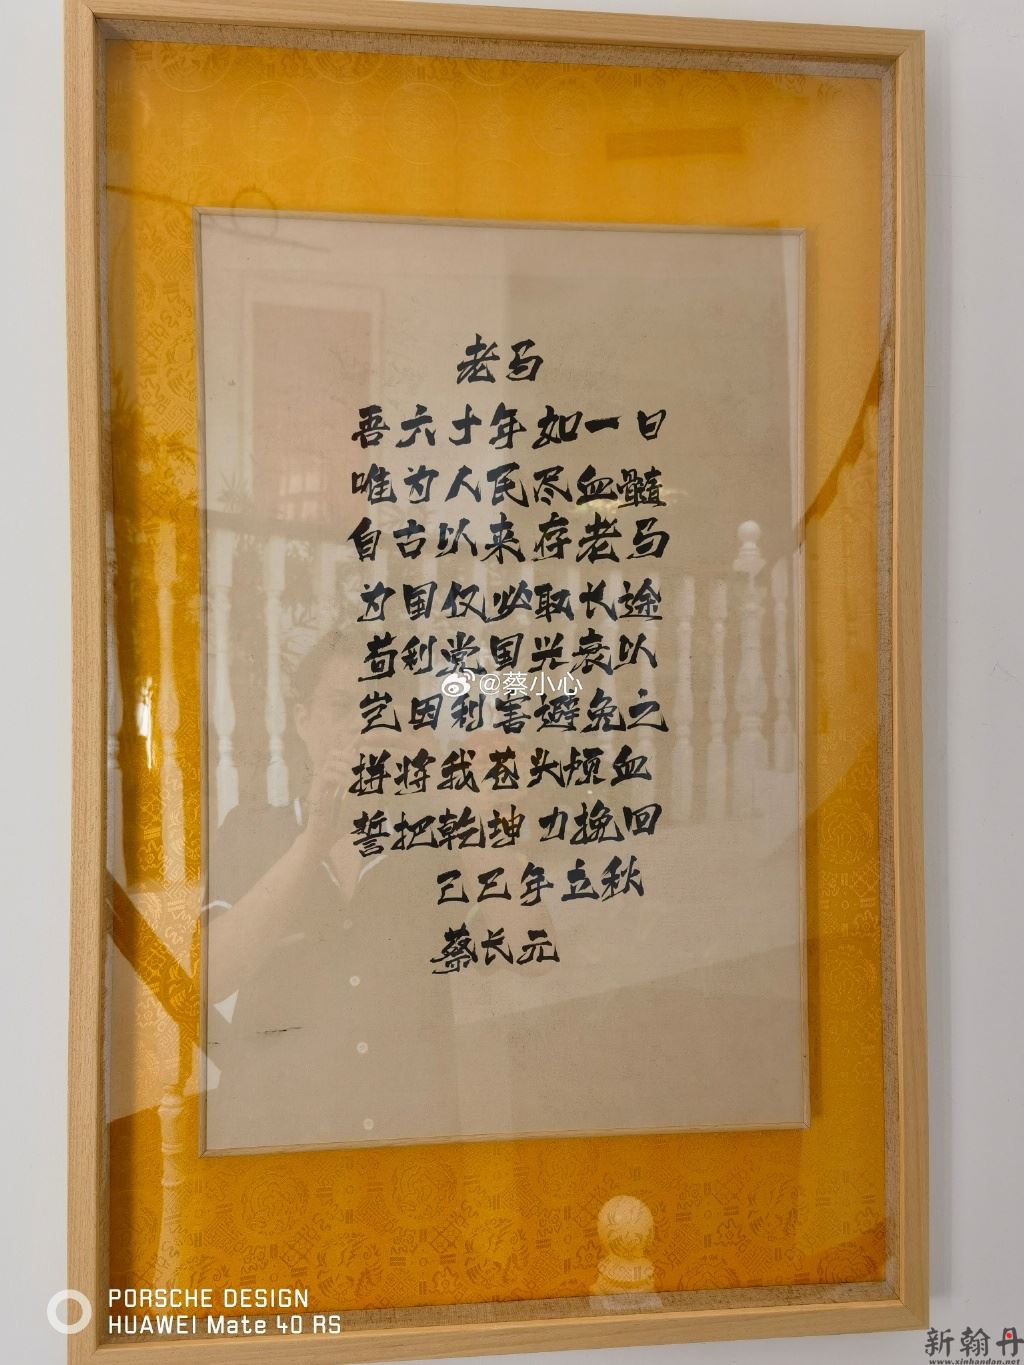 老马
吾六十年如一日
唯为人民尽血髓
自古以来存老马
为国仅必取长途
苟利党国兴衰以
岂因利害避免之
拼将我苍头烦血
誓把乾坤力挽回
己巳年立秋
蔡长元
@蔡小心
PORSCHE DESIGN
HUAWEI Mate 40 RS
新翰丹
www.xinhandan.net